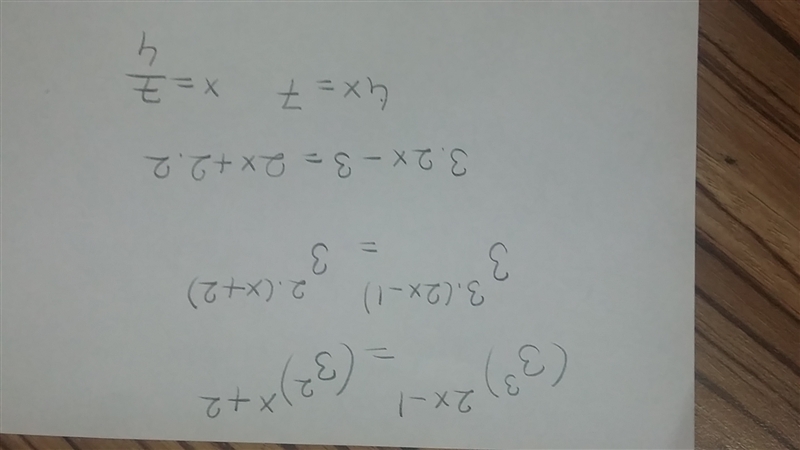 (3³)²ˣ⁻¹ = (3²)ˣ⁺²
3³·⁽²ˣ⁻¹⁾ = 3²·⁽ˣ⁺²⁾
3.2x - 3 = 2x + 2.2
4x = 7 x = 7/4